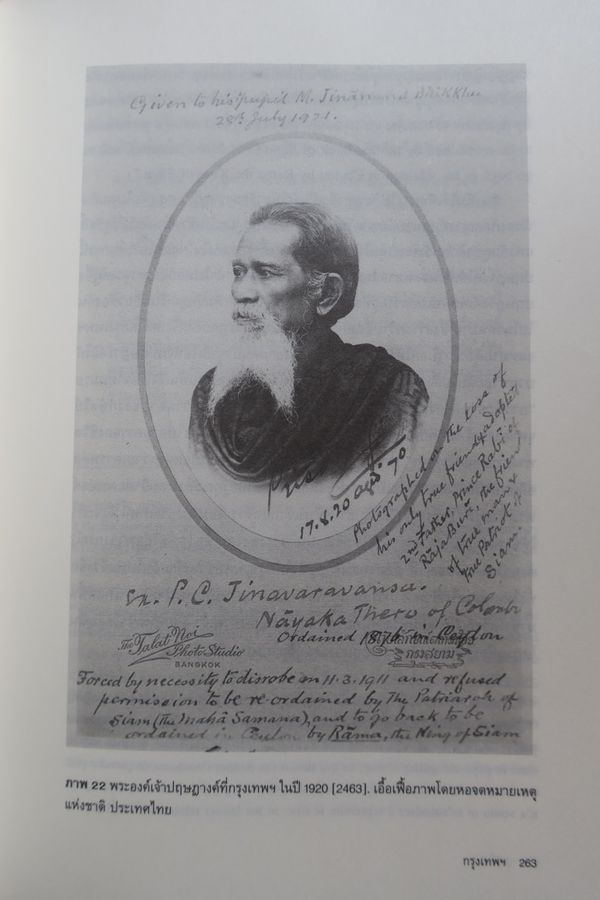 Given to his pupil M. Jinānand Bhikkhu
28th July 1921.
17.8.20 aged 70
Photographed on the loss of
his only true friend & adopted
2nd Father, Prince Rabi of
Rāja Buri, the friend
of true man &
true Patriot of
Siam.
P. C. Jinavaravansa.
Nāyaka Thero of Colombo
Ordained in Ceylon
The Talat Noi
Photo Studio
BANGKOK
กรุงสยาม
Forced by necessity to disrobe on 11.3.1911 and refused
permission to be re-ordained by The Patriarch of
Siam (the Mahā Samana), and to go back to be
ordained in Ceylon by Rāma, the King of Siam
ภาพ 22 พระองค์เจ้าปฤษฎางค์ที่กรุงเทพฯ ในปี 1920 [2463]. เอื้อเฟื้อภาพโดยหอจดหมายเหตุ
แห่งชาติ ประเทศไทย
กรุงเทพฯ 263